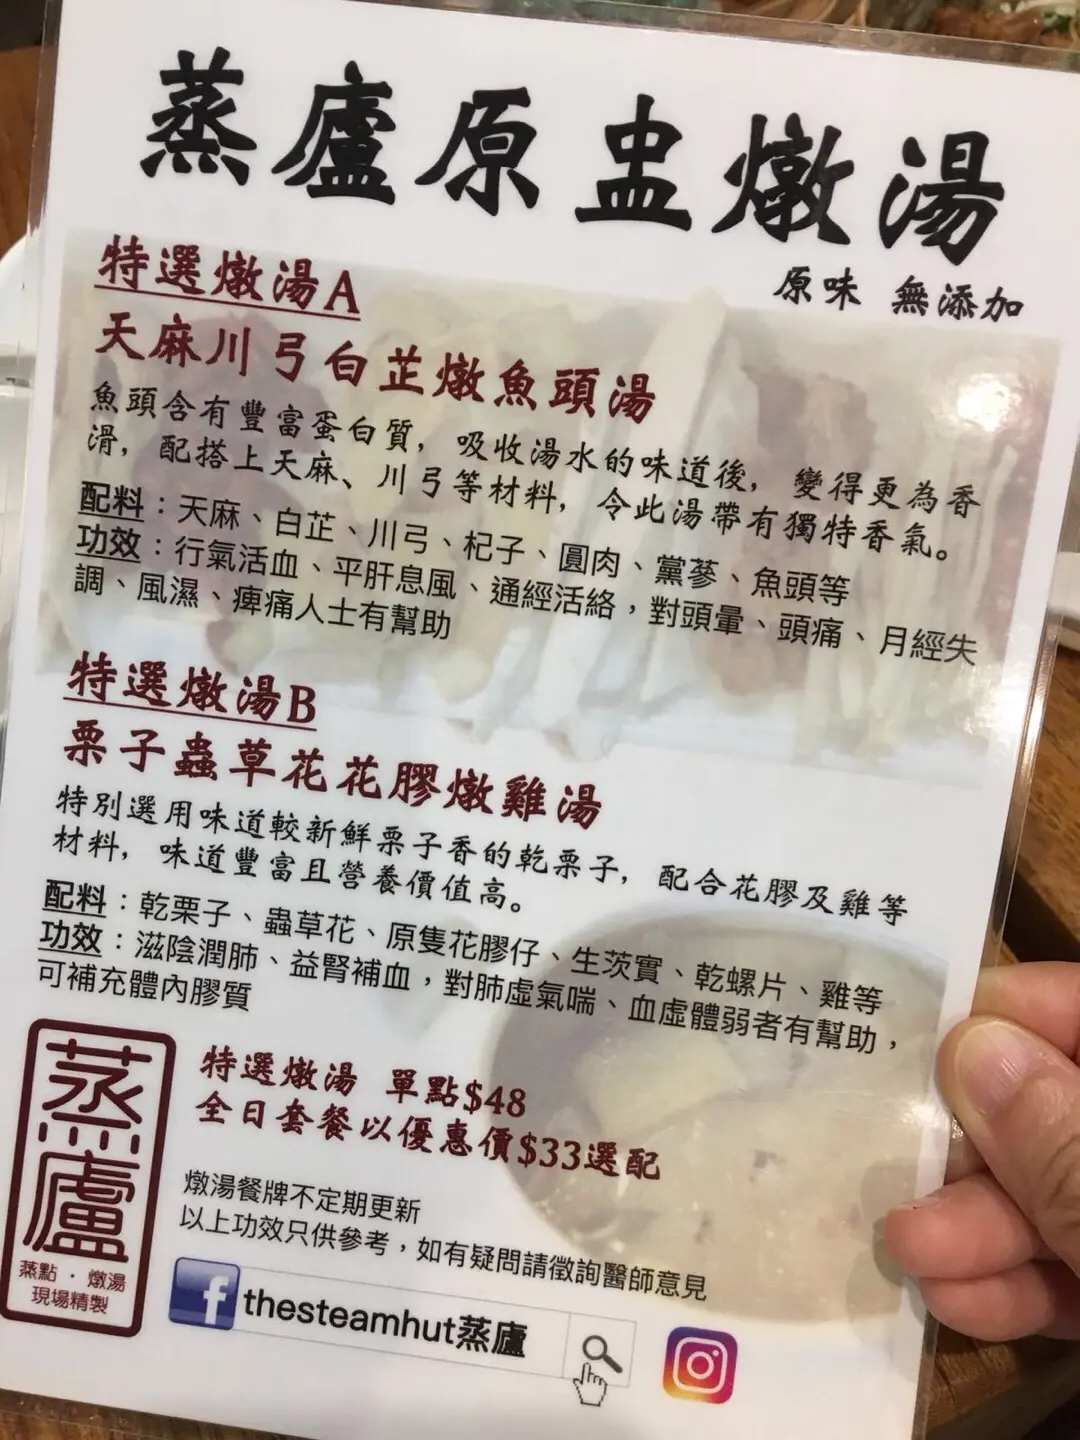 蒸廬原盅燉湯
原味 無添加
特選燉湯A
天麻川弓白芷燉魚頭湯
魚頭含有豐富蛋白質，吸收湯水的味道後，變得更為香
滑，配搭上天麻、川弓等材料，令此湯帶有獨特香氣。
配料：天麻、白芷、川弓、杞子、圓肉、黨蔘、魚頭等
功效：行氣活血、平肝息風、通經活絡，對頭暈、頭痛、月經失
調、風濕、痺痛人士有幫助
特選燉湯B
栗子蟲草花花膠燉雞湯
特別選用味道較新鮮栗子香的乾栗子，配合花膠及雞等
材料，味道豐富且營養價值高。
配料：乾栗子、蟲草花、原隻花膠仔、生茨實、乾螺片、雞等
功效：滋陰潤肺、益腎補血，對肺虛氣喘、血虛體弱者有幫助，
可補充體內膠質
特選燉湯 單點$48
全日套餐以優惠價$33選配
燉湯餐牌不定期更新
以上功效只供參考，如有疑問請徵詢醫師意見
蒸廬
蒸點．燉湯
現場精製
f thesteamhut蒸廬